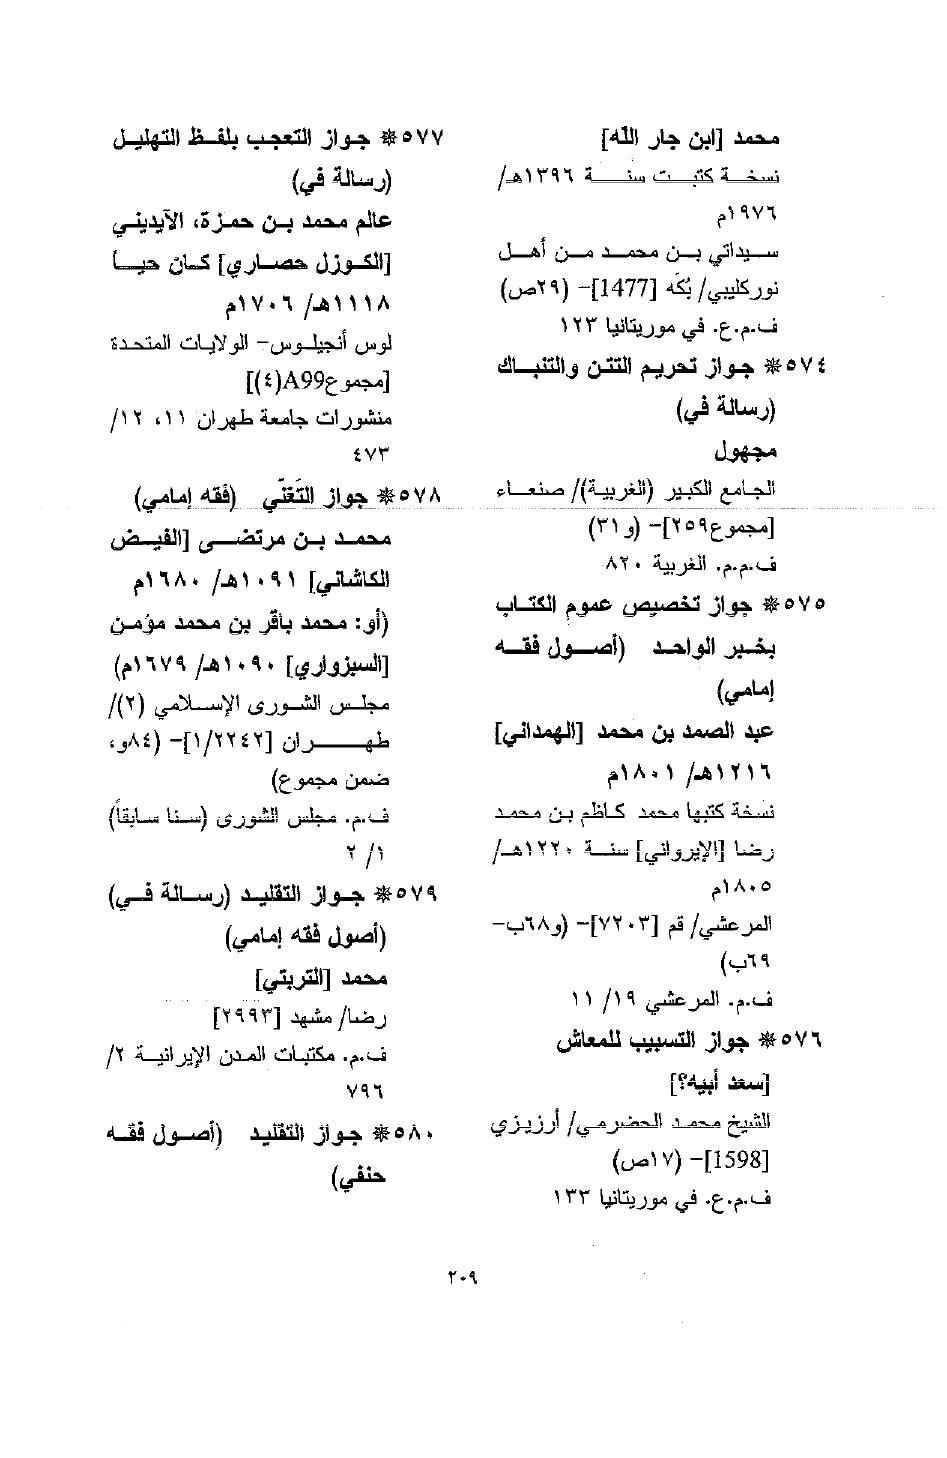 محمد [ابن جار الله]
نسخة كتبت سنة ١٣٩٦هـ/
١٩٧٦م
سيداتي بن محمد من أهل
نوركليبي/ بُكَه [1477]- (٢٩ص)
ف.م.ع. في موريتانيا ١٢٣
٥٧٤* جواز تحريم التتن والتنباك
(رسالة في)
مجهول
الجامع الكبير (الغربية)/ صنعاء
[مجموع٢٥٩]- (و٣١)
ف.م.م. الغربية ٨٢٠
٥٧٥* جواز تخصيص عموم الكتاب
بخبر الواحد (أصول فقه
إمامي)
عبد الصمد بن محمد [الهمداني]
١٢١٦هـ/ ١٨٠١م
نسخة كتبها محمد كاظم بن محمد
رضا [الإيرواني] سنة ١٢٢٠هـ/
١٨٠٥م
المرعشي/ قم [٧٢٠٣]- (و٦٨ب-
٦٩ب)
ف.م. المرعشي ١٩/ ١١
٥٧٦* جواز التسبيب للمعاش
[سعد أبيه؟]
الشيخ محمد الحضرمي/ أرزيزي
[1598]- (١٧ص)
ف.م.ع. في موريتانيا ١٣٣
٥٧٧* جواز التعجب بلفظ التهليل
(رسالة في)
عالم محمد بن حمزة، الآيديني
[الكوزل حصاري] كان حياً
١١١٨هـ/ ١٧٠٦م
لوس أنجيلوس- الولايات المتحدة
[مجموعA99(٤)]
منشورات جامعة طهران ١١، ١٢/
٤٧٣
٥٧٨* جواز التَغنّي (فقه إمامي)
محمد بن مرتضى [الفيض
الكاشاني] ١٠٩١هـ/ ١٦٨٠م
(أو: محمد باقر بن محمد مؤمن
[السبزواري] ١٠٩٠هـ/ ١٦٧٩م)
مجلس الشورى الإسلامي (٢)/
طهران [١/٢٢٤٢]- (٨٤و،
ضمن مجموع)
ف.م. مجلس الشورى (سنا سابقاً)
١/ ٢
٥٧٩* جواز التقليد (رسالة في)
(أصول فقه إمامي)
محمد [التربتي]
رضا/ مشهد [٢٩٩٣]
ف.م. مكتبات المدن الإيرانية ٢/
٧٩٦
٥٨٠* جواز التقليد (أصول فقه
حنفي)
٢٠٩